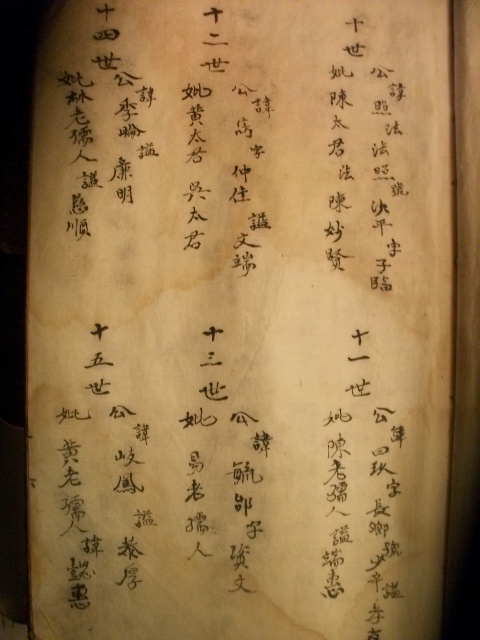 十世
公諱照法法照號次平字子臨
妣陳太君法陳妙賢
十一世
公諱四玖字長卿號少平謚
妣陳老孺人謚端惠
十二世
公諱篤字仲佳謚文端
妣黃太君吳太君
十三世
公諱毓邰字資文
妣易老孺人
十四世
公諱季晚謚廉明
妣林老孺人謚慈順
十五世
公諱岐鳳謚恭厚
妣黃老孺人諱懿惠